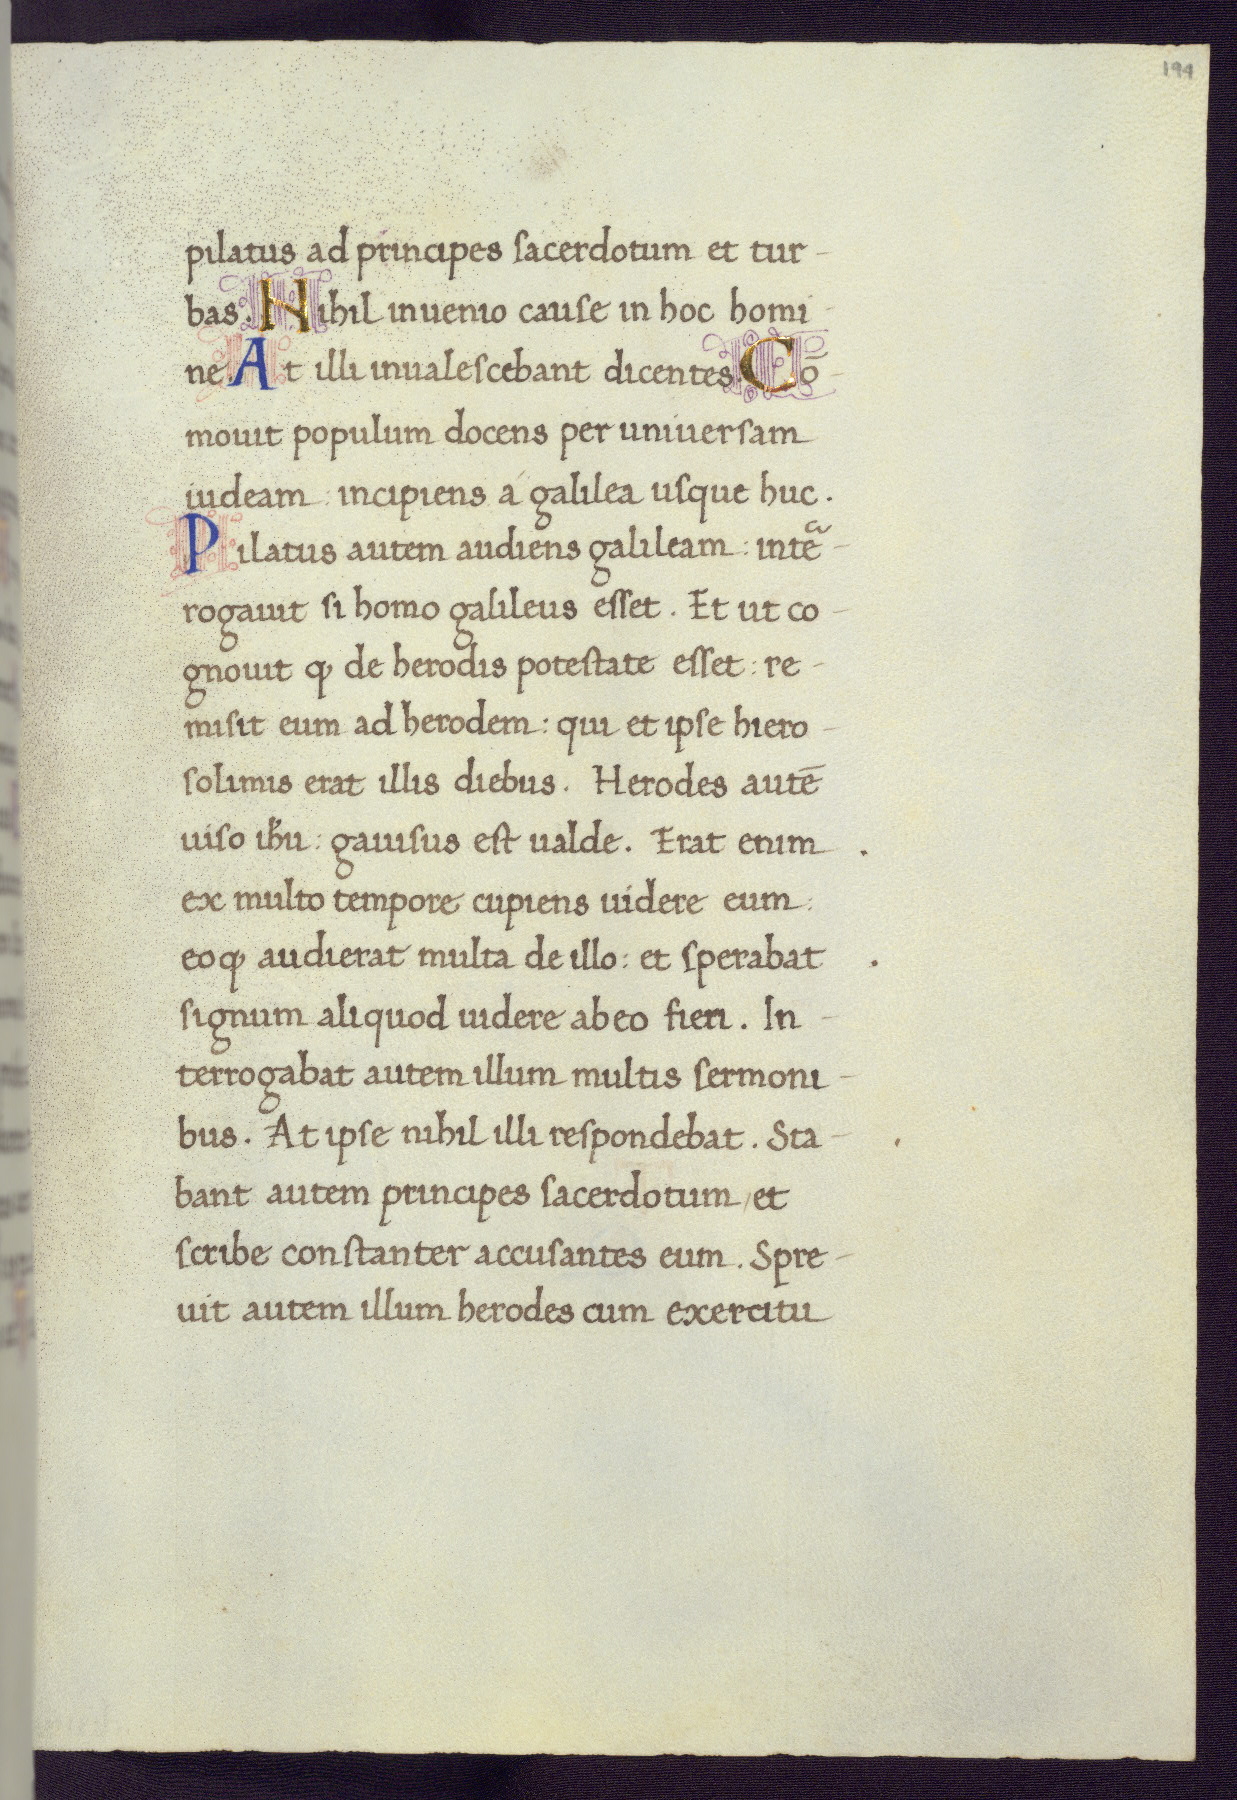 194
pilatus ad principes sacerdotum et tur-
bas. Nihil inuenio cause in hoc homi
ne. At illi inualescebant dicentes. Cō-
mouit populum docens per uniuersam
iudeam: incipiens a galilea usque huc.
Pilatus autem audiens galileam: inte-
rogauit si homo galileus esset. Et ut co-
gnouit ꝙ de herodis potestate esset: re-
misit eum ad herodem: qui et ipse hiero-
solimis erat illis diebus. Herodes autē
uiso ihu: gauisus est ualde. Erat enim
ex multo tempore cupiens uidere eum:
eoꝙ audierat multa de illo: et sperabat
signum aliquod uidere ab eo fieri. In-
terrogabat autem illum multis sermoni-
bus. At ipse nihil illi respondebat. Sta-
bant autem principes sacerdotum/et
scribe constanter accusantes eum. Spre-
uit autem illum herodes cum exercitu